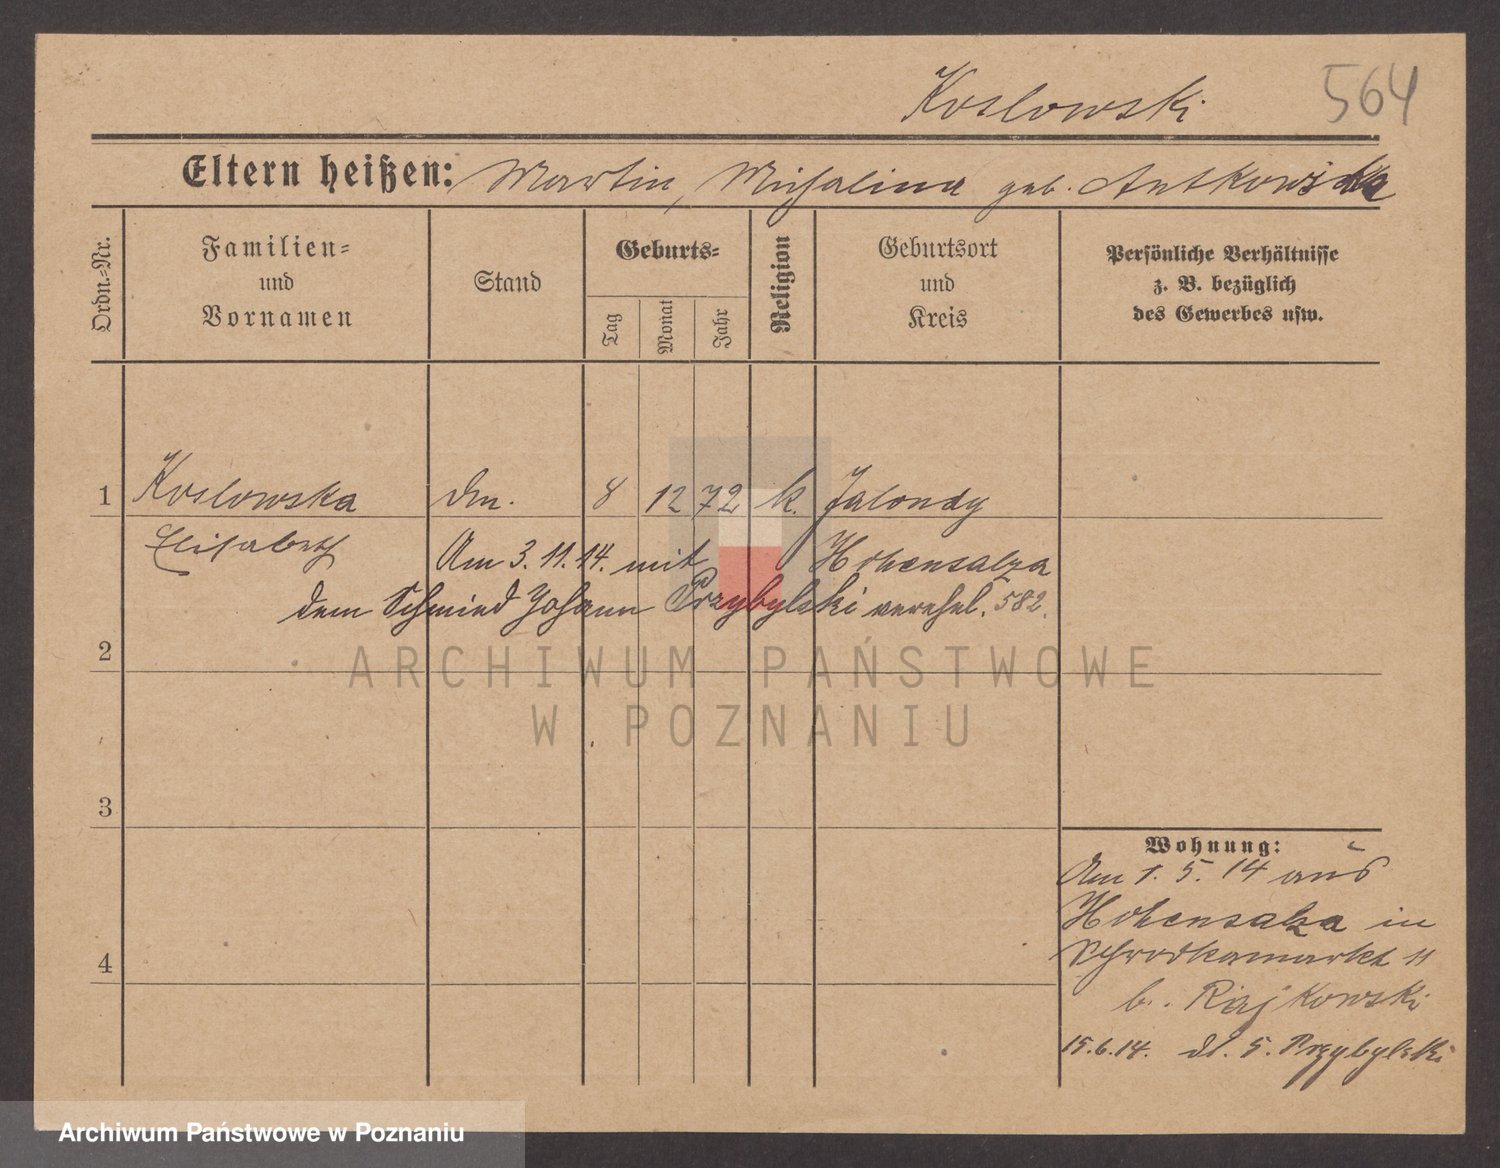 Koslowski 564
Eltern heißen: Martin, Michalina geb. Antkowska
Ordn.-Nr.
Familien-
und
Vornamen
Stand
Geburts-
Tag
Monat
Jahr
Religion
Geburtsort
und
Kreis
Persönliche Verhältnisse
z. B. bezüglich
des Gewerbes usw.
1 Koslowska 8 12 72 k. Jalondy
Elisabeth Am 3. 11. 14. mit Hohensalza
dem Schmied Johann Przybylski verehel. 582.
2
3
4
Wohnung:
Am 1. 5. 14 aus
Hohensalza in
Schrodkamarkt 11
b. Rajkowski
15.6.14. dl. 5. Przybylski
ARCHIWUM PAŃSTWOWE
W POZNANIU
Archiwum Państwowe w Poznaniu